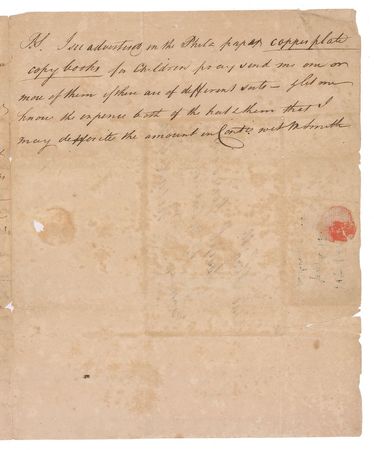 P.S. I see advertised in the Phila papers copper plate
copy books for Children pray send me one or
more of them if there are of different sorts – & let me
know the expence both of the hat & them that I
may deposite the amount in Cont. with Mr Smith